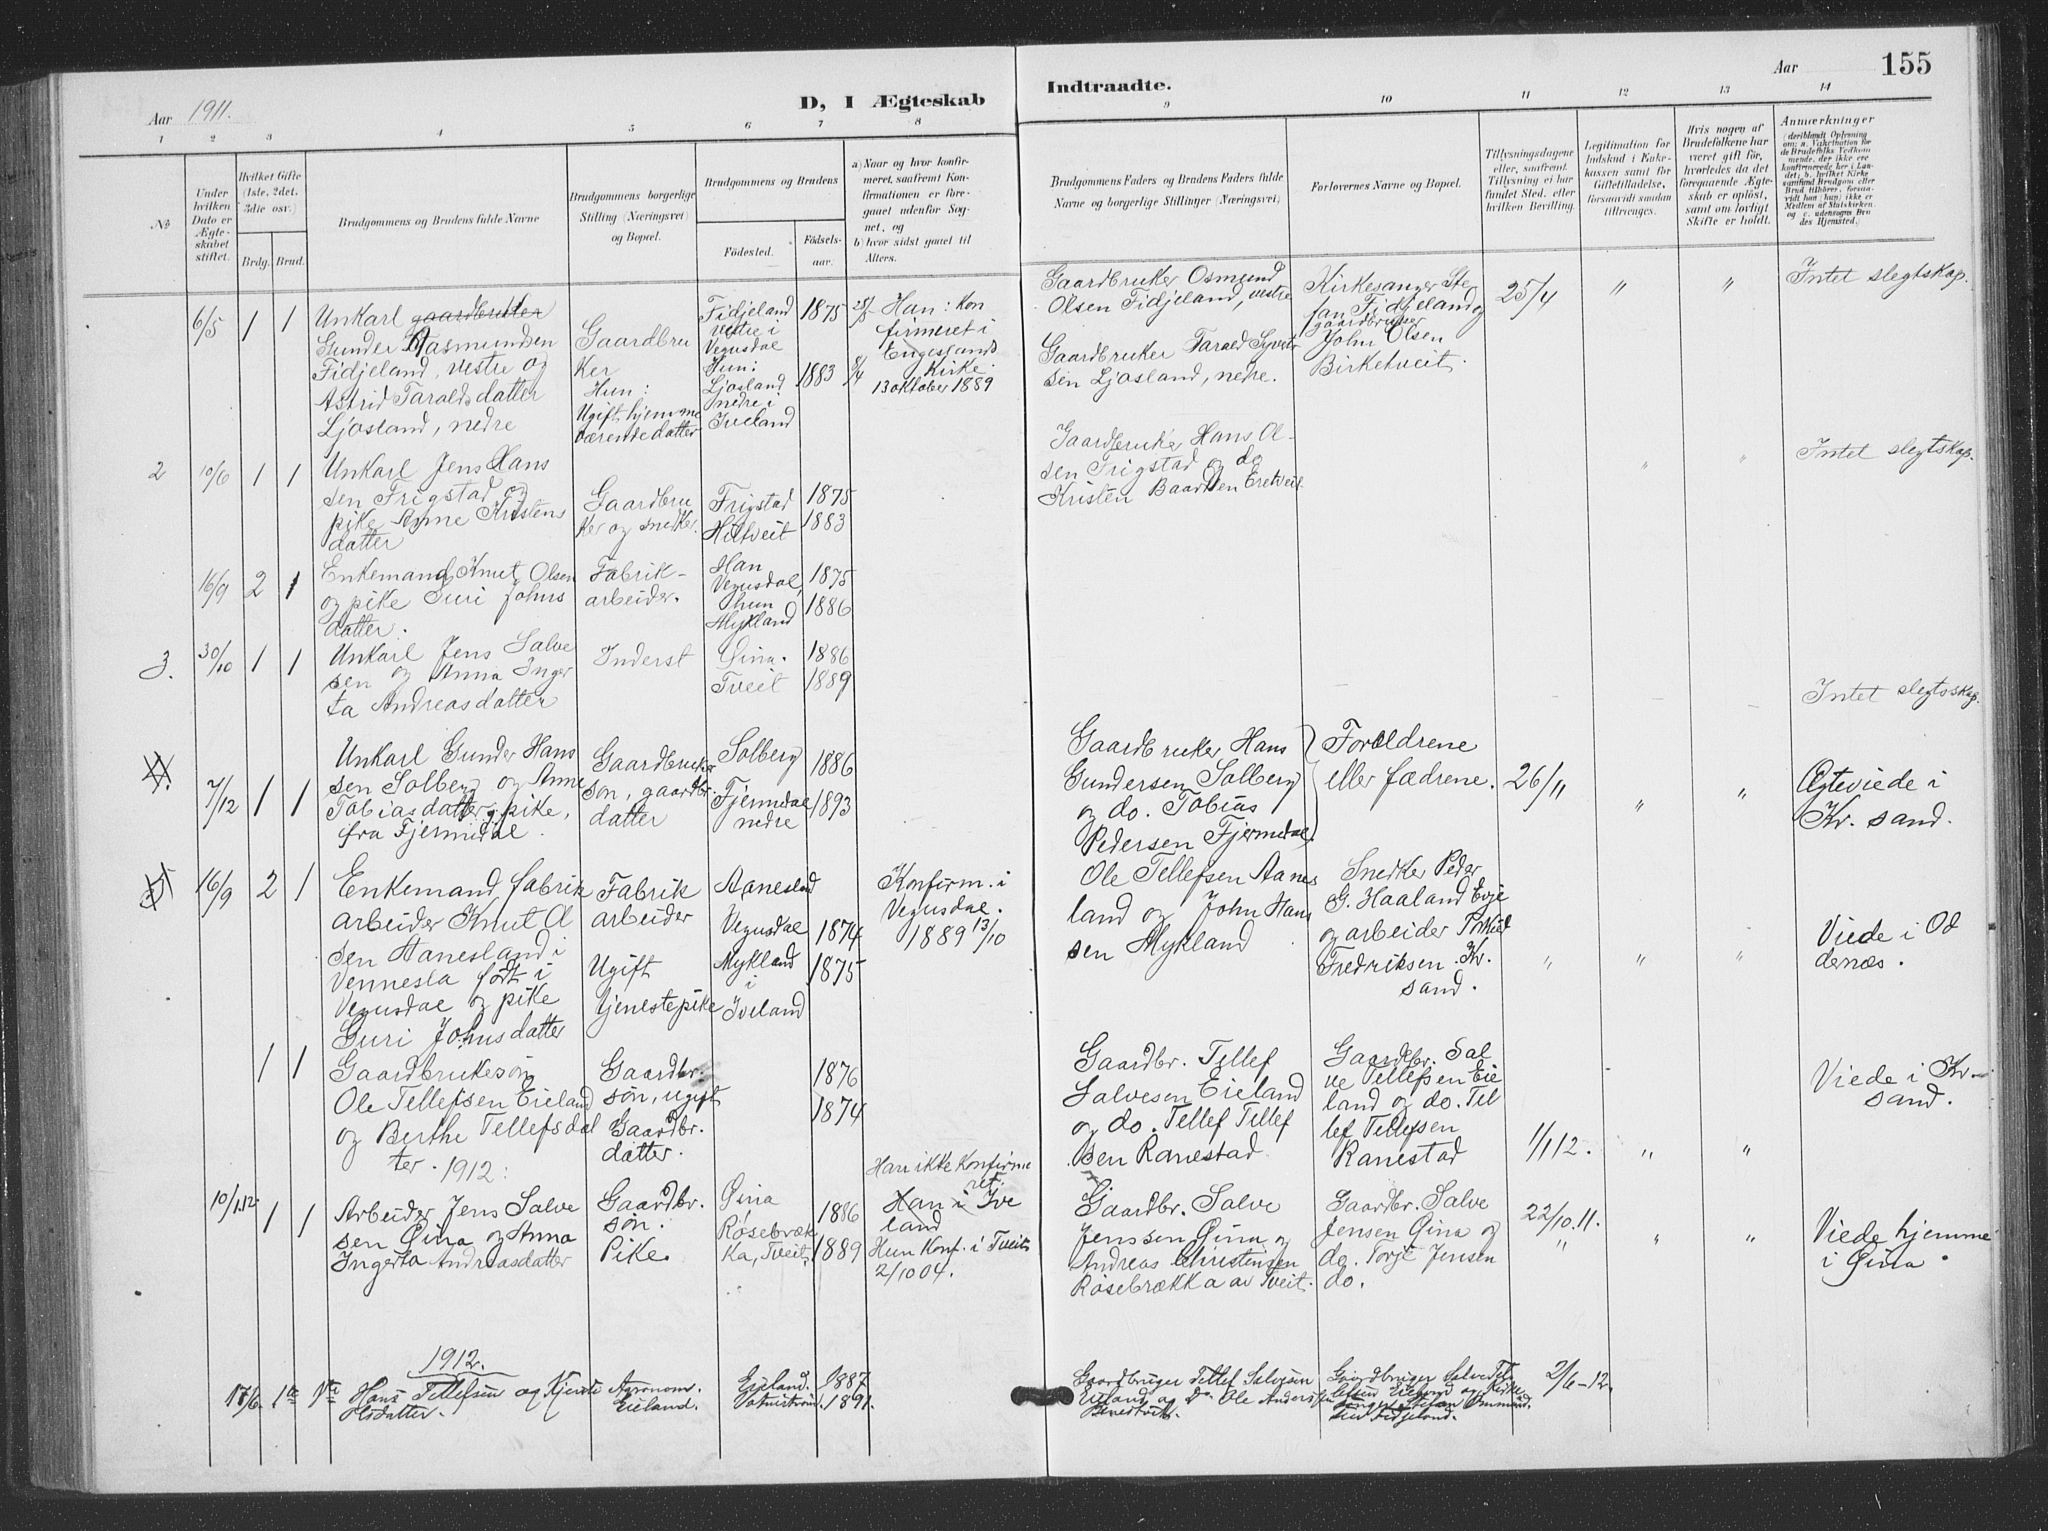 Aar 1911.
D, I Ægteskab
Indtraadte.
Aar
155
1 2 3 4 5 6 7 8 9 10 11 12 13 14
№
Under hvilken Dato er Ægteskabet stiftet.
Hvilket Gifte (1ste, 2det, 3die osv.)
Brdg. Brud.
Brudgommens og Brudens fulde Navne
Brudgommens borgerlige Stilling (Næringsvei) og Bopæl.
Brudgommens og Brudens
Fødested.
Fødselsaar.
a) Naar og hvor konfirmeret, saafremt Konfirmationen er foregaaet udenfor Sognet, og
b) hvor sidst gaaet til Alters.
Brudgommens Faders og Brudens Faders fulde Navne og borgerlige Stillinger (Næringsvei)
Forlovernes Navne og Bopæl.
Tillysningsdagene eller, saafremt Tillysning ei har fundet Sted, efter hvilken Bevilling.
Legitimation for Indskud i Enkekassen samt for Giftetilladelse, forsaavidt saadan tiltrænges.
Hvis nogen af Brudefolkene har været gift før, hvorledes da det foregaaende Ægteskab er opløst, samt om lovligt Skifte er holdt.
Anmærkninger
6/5 1 1
Unkarl gaardbruker
Gunder Aasmundsen
Fidjeland, vestre og
Astrid Taraldsdatter
Ljosland, nedre
Gaardbru
ker
Hun:
Ugift hjemme
værende datter
Fidjeland
vestre i
Vegusdal
Hun:
Ljosland
nedre i
Iveland
1875
1883
Han: Kon
firmeret i
Engeslands
Kirke
13 oktober 1889
Gaardbruker Osmund
Olsen Fidjeland, vestre
Gaardbruker Tarald Syverts
sen Ljosland, nedre.
Kirkesanger Ste
fan Fidjeland og
gaardbruker
John Olsen
Birketveit.
25/4
"
"
Intet slegtskap.
2 10/6 1 1
Unkarl Jens Hans
sen Frigstad og
pike Anne Kristens
datter
Gaardbru
ker og snekker.
Frigstad
Hiltveit
1875
1883
Gaardbruker Hans Ol
sen Frigstad og do
Kristen Baardsen Eretveit
"
"
Intet slegtskap.
16/9 2 1
Enkemand Knut Olsen
og pike Guri Johns
datter.
Fabrik-
arbeider.
Han
Vegusdal,
hun
Mykland
1875
1886
3. 30/10 1 1
Unkarl Jens Salve
sen og Anna Inger
ta Andreasdatter
Inderst
Øina.
Tveit
1886
1889
Intet slegtsskap.
7/12 1 1
Unkarl Gunder Hans
sen Solberg og Anne
Tobiasdatter, pike,
fra Fjermedal.
Gaardbruker
søn, gaardbr.
datter
Solberg
Fjermedal
nedre
1886
1893
Gaardbruker Hans
Gundersen Solberg
og do. Tobias
Pedersen Fjermedal
Forældrene
eller fædrene.
26/11
"
"
Ægteviede i
Kr. sand.
16/9 2 1
Enkemand fabrik
arbeider Knut Ol
sen Aanesland i
Vennesla født i
Vegusdal og pike
Guri Johnsdatter
Fabrik
arbeider
Ugift
tjenestepike
Aanesland
Vegusdal
Mykland
i
Iveland
1874
1875
Konfirm. i
Vegusdal.
1889 13/10
Ole Tellefsen Aanes
land og John Hans
sen Mykland
Snedker Peder
G. Haaland Evje
og arbeider Torkild
Fredriksen Kr.
sand.
"
"
"
Viede i Od
dernæs.
1 1
Gaardbrukesøn
Ole Tellefsen Eieland
og Berthe Tellefsdat
ter. 1912:
Gaardbr.
søn, ugift
Gaardbr.
datter.
1876
1874
Gaardbr. Tellef
Salvesen Eieland
og do. Tellef Tellef
sen Ranestad
Gaardbr. Sal
ve Tellefsen Eie
land og do. Tel
lef Tellefsen
Ranestad
1/1 12.
"
"
Viede i Kr-
sand.
10/1.12 1 1
Arbeider Jens Salve
sen Øina og Anna
Ingerta Andreasdatter
Gaardbr.
søn.
Pike.
Øina
Røsebræk
ka, Tveit,
1886
1889
Han ikke Konfirme
ret.
Han i Ive
land
Hun Konf. i Tveit
2/10 04.
Gaardbr. Salve
Jenssen Øina og
Andreas Christensen
Røsebrækka av Tveit.
Gaardbr. Salve
Jensen Øina og
do. Torje Jensen
do.
22/10.11.
"
"
"
Viede hjemme
i Øina.
1912.
17/6 1te 1te
Hans Tellefsen og Kjerste
Olsdatter.
Agronom.
Eieland.
Eieland.
1887
1891.
Gaardbruger Tellef Salvesen
Eieland og Do Ole Andersen
Gaardbruger Salve Tel
lefsen Eieland og Kirke
sanger Stefan Osmund
sen Fidjeland.
2/6-12.